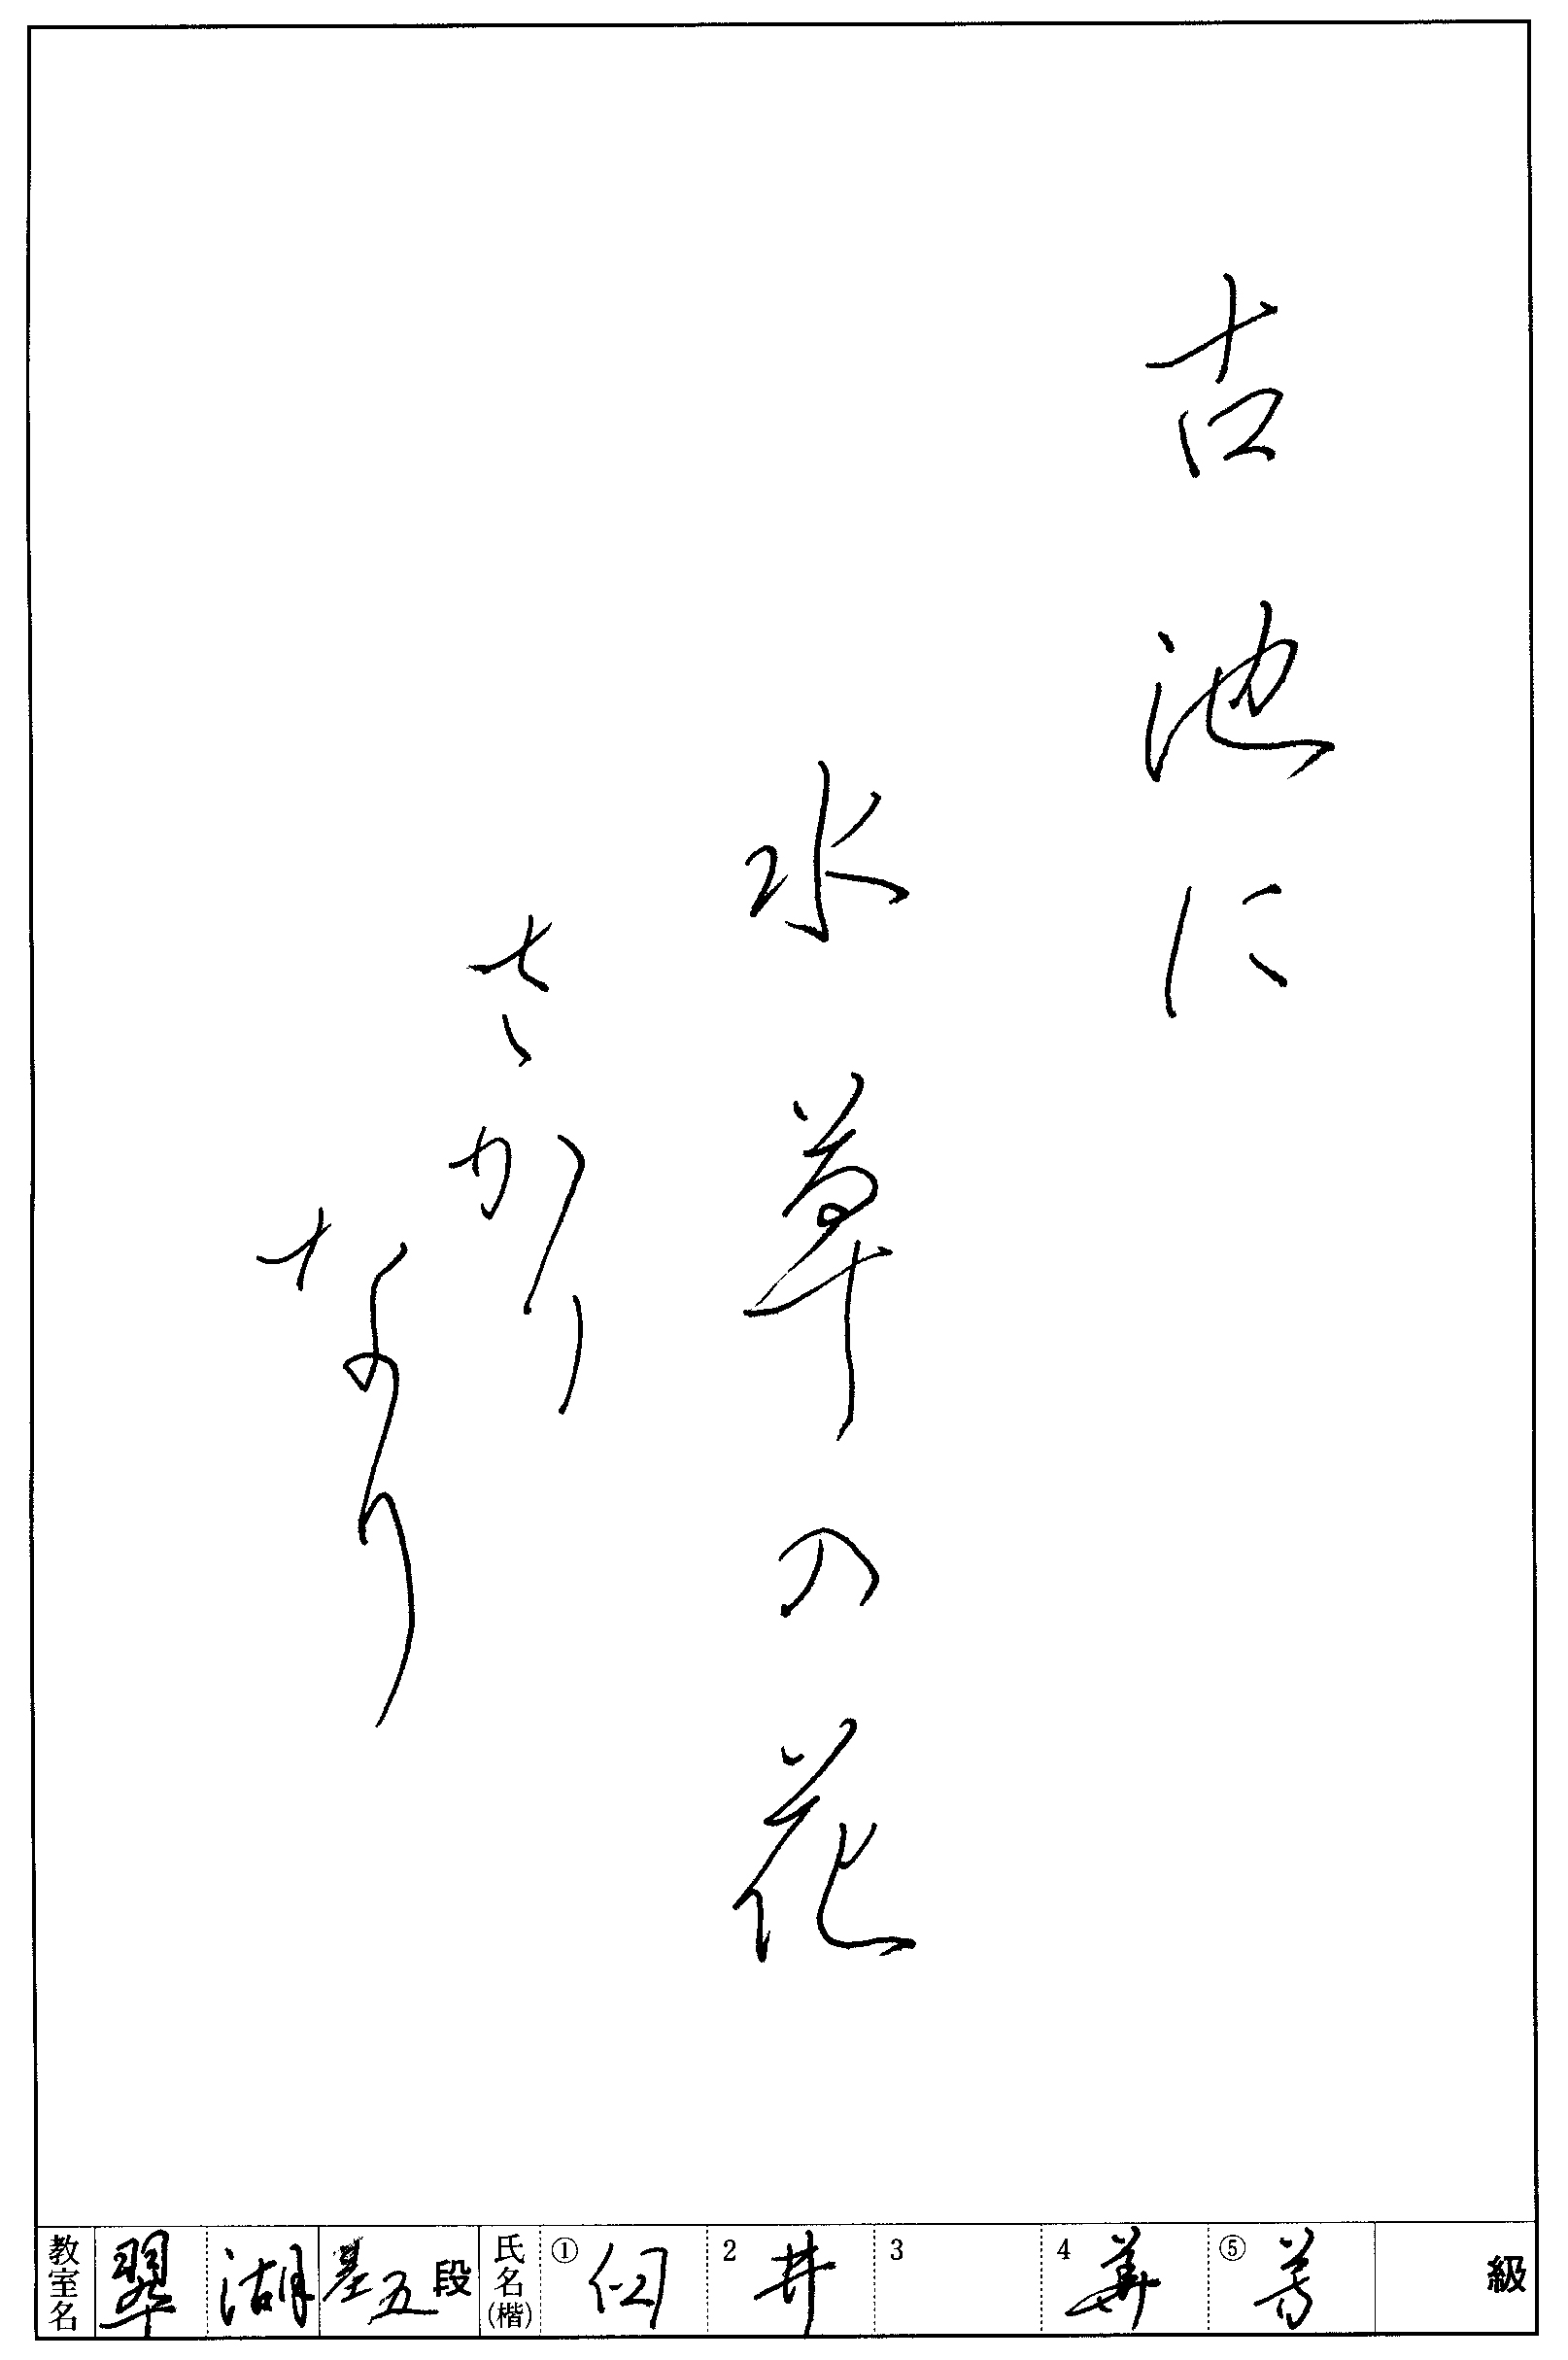 古池に
水草の花
さかり
なり
教室名 翠湖 基五段 氏名(楷) ① 2 井 3 4 華 ⑤ 芳 級